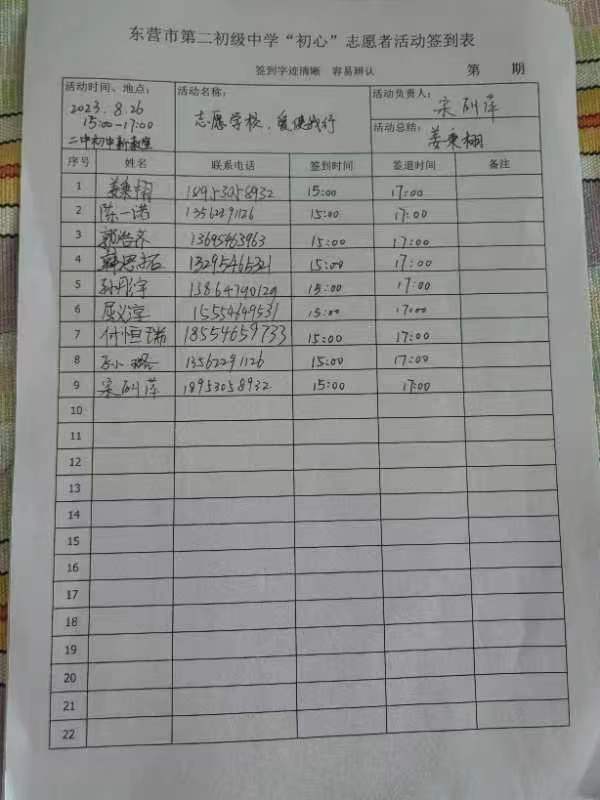 东营市第二初级中学“初心”志愿者活动签到表
签到字迹清晰 容易辨认 第 期
活动时间、地点： 活动名称： 活动负责人：
2023.8.26 志愿学校，爱使我行
15:00-17:00 活动总结：姜秉栩
二中初中新教室
序号 姓名 联系电话 签到时间 签退时间 备注
1 姜秉栩 18953058932 15:00 17:00
2 陈一诺 13562291126 15:00 17:00
3 郭浩齐 13695463963 15:00 17:00
4 13295465321 15:00 17:00
5 孙彤宇 15:00 17:00
6 15:00 17:00
7 付恒瑞 18554659733 15:00 17:00
8 13562291126 15:00 17:00
9 18953058932 15:00 17:00
10
11
12
13
14
15
16
17
18
19
20
21
22